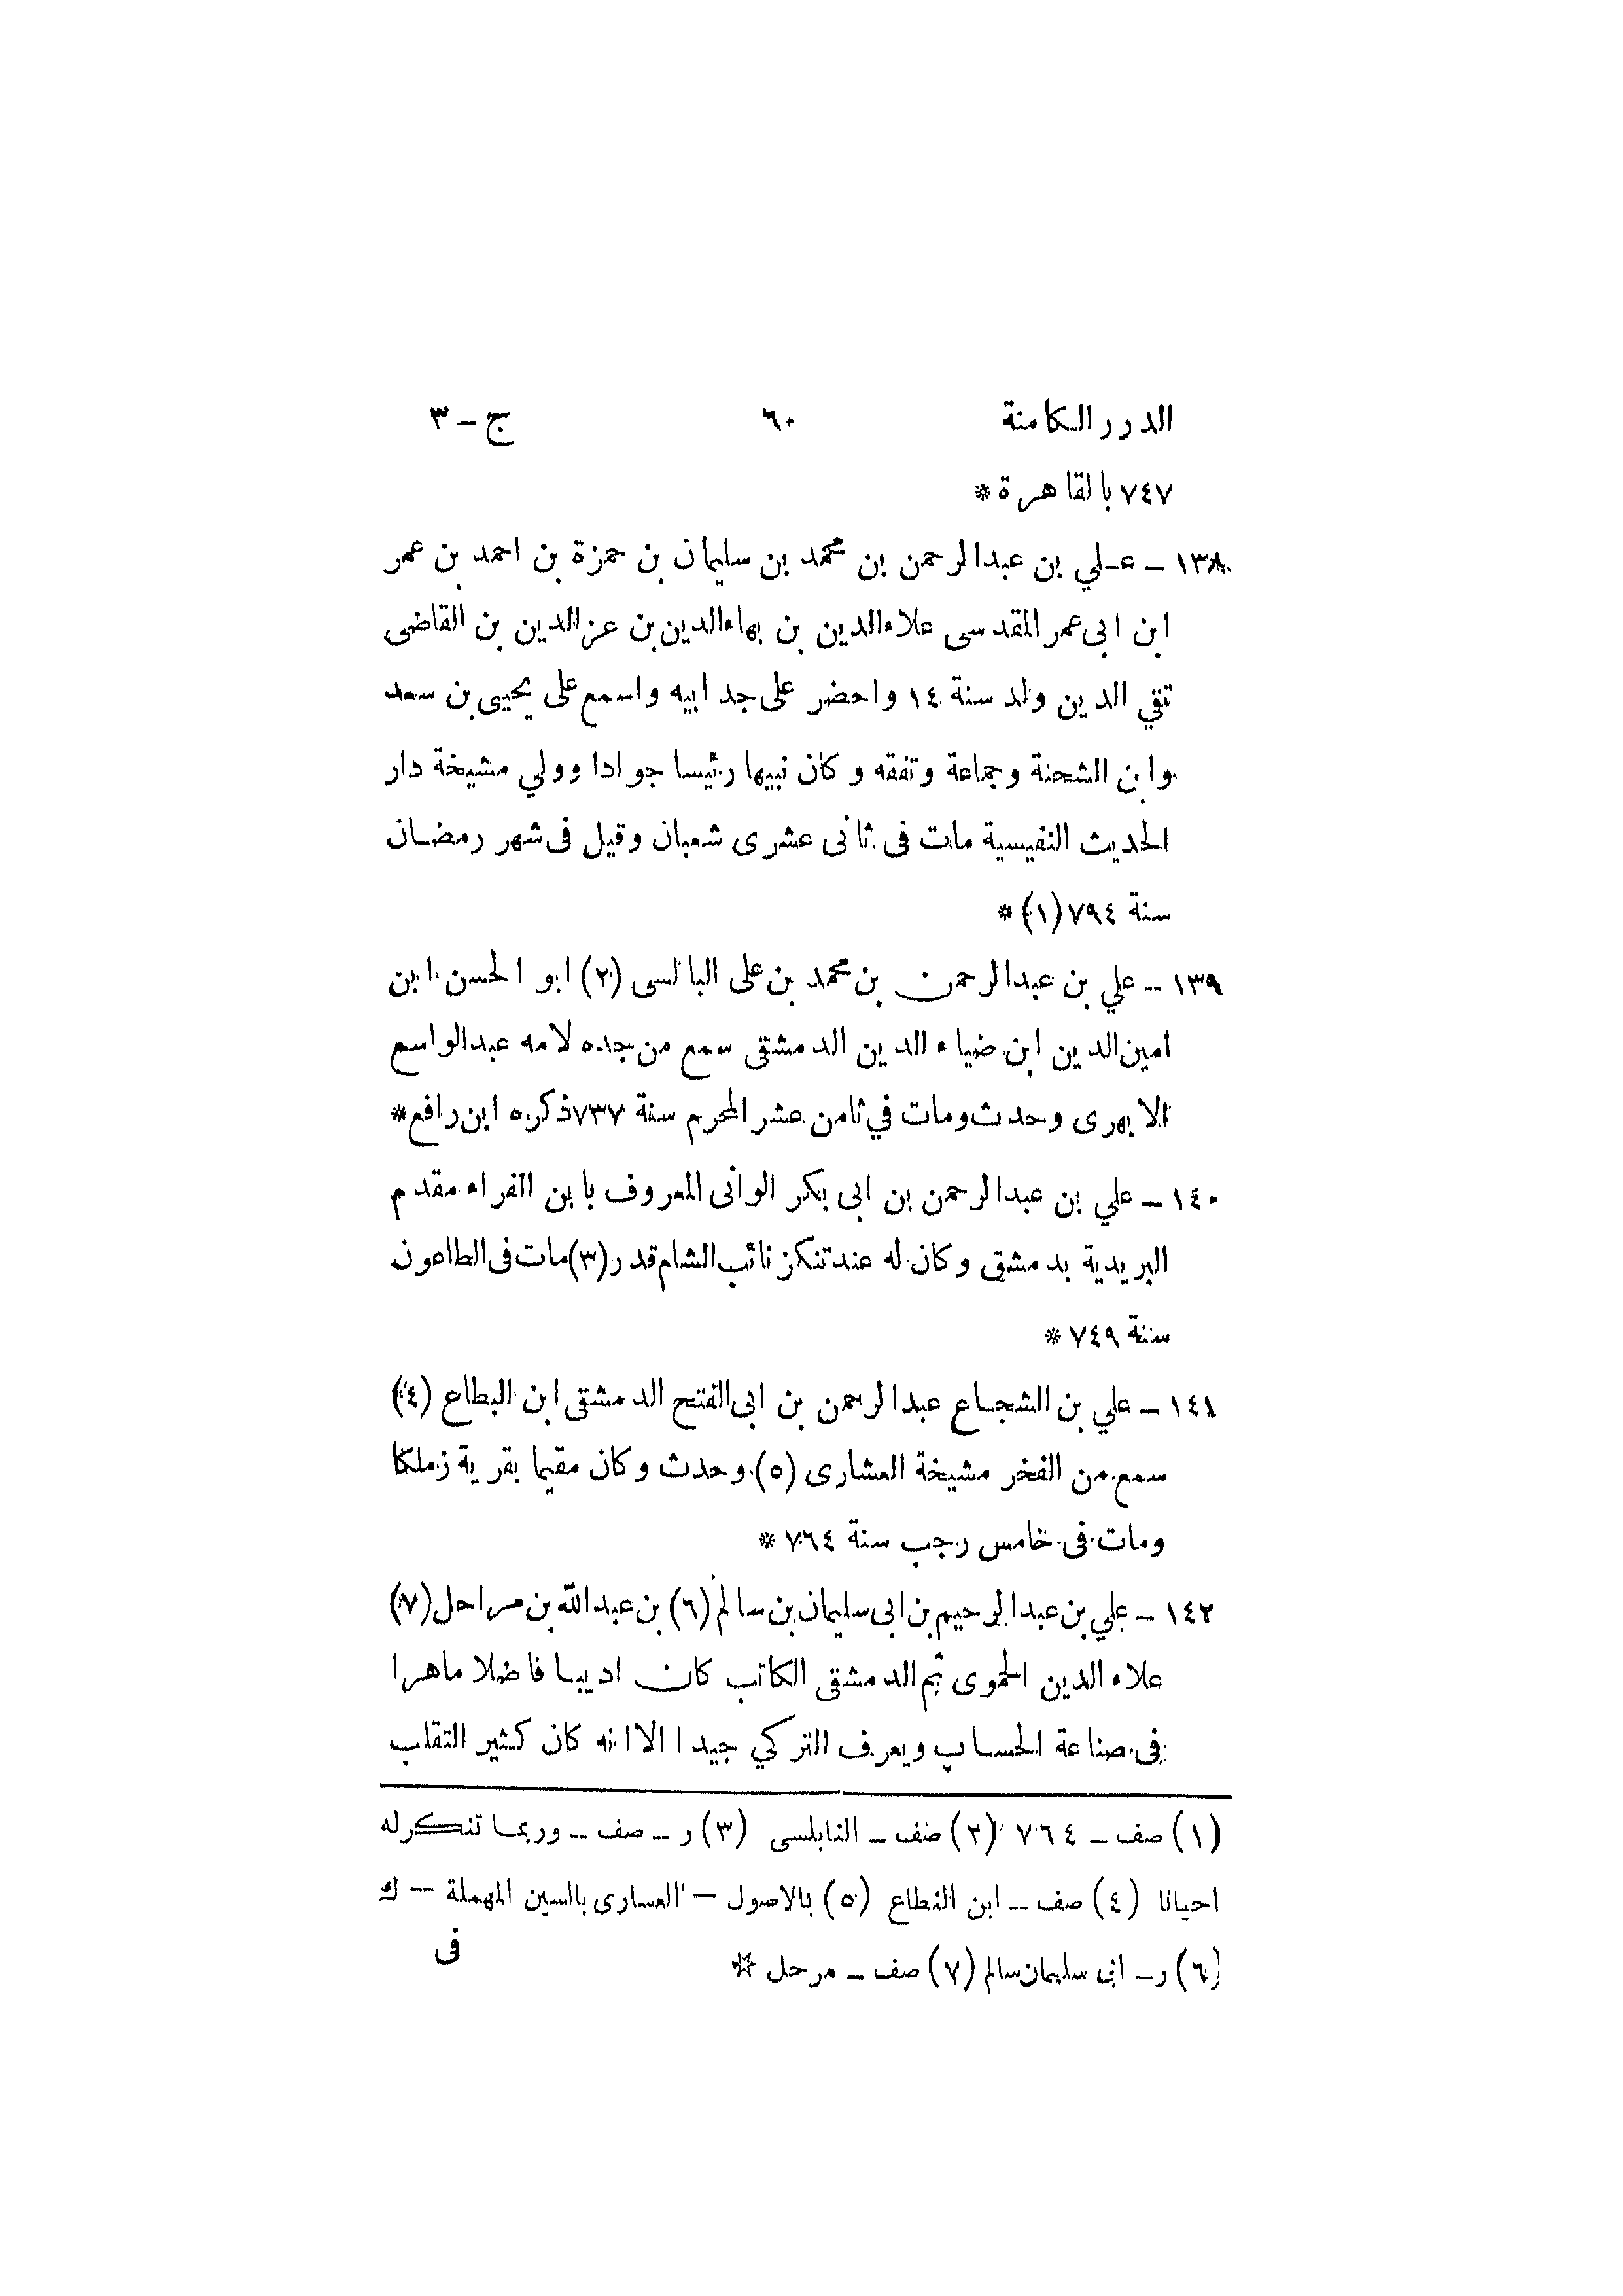 الدرر الكامنة ٦٠ ج – ٣
٧٤٧ بالقاهرة *
١٣٨ – علي بن عبدالرحمن بن محمد بن سليمان بن حمزة بن احمد بن عمر
ابن ابى عمر المقدسى علاء الدين بن بهاء الدين بن عز الدين بن القاضى
تقي الدين ولد سنة ١٤ واحضر على جد ابيه واسمع على يحيى بن سعد
وابن الشحنة وجماعة وتفقه وكان نبيها رئيسا جوادا وولي مشيخة دار
الحديث النفيسية مات فى ثانى عشرى شعبان وقيل فى شهر رمضان
سنة ٧٩٤ (١) *
١٣٩ – علي بن عبدالرحمن بن محمد بن على البالسى (٢) ابو الحسن ابن
امين الدين ابن ضياء الدين الدمشقى سمع من جده لامه عبدالواسع
الابهرى وحدث ومات في ثامن عشر المحرم سنة ٧٣٧ ذكره ابن رافع *
١٤٠ – علي بن عبدالرحمن بن ابى بكر الوانى المعروف بابن الفراء مقدم
البريدية بدمشق وكان له عند تنكز نائب الشام قدر (٣) مات فى الطاعون
سنة ٧٤٩ *
١٤١ – علي بن الشجاع عبدالرحمن بن ابى الفتح الدمشقى ابن البطاع (٤)
سمع من الفخر مشيخة العشارى (٥) وحدث وكان مقيما بقرية زملكا
ومات فى خامس رجب سنة ٧٦٤ *
١٤٢ – علي بن عبدالرحيم بن ابى سليمان بن سالم (٦) بن عبدالله بن مراحل (٧)
علاء الدين الحموى ثم الدمشقى الكاتب كان اديبا فاضلا ماهرا
فى صناعة الحساب ويعرف التركي جيدا الا انه كان كثير التقلب
(١) صف – ٧٦٤ (٢) صف – النابلسى (٣) ر – صف – وربما تنكر له
احيانا (٤) صف – ابن النطاع (٥) بالاصول – العسارى بالسين المهملة – ك
(٦) ر – ابى سليمان سالم (٧) صف – مرحل *
فى